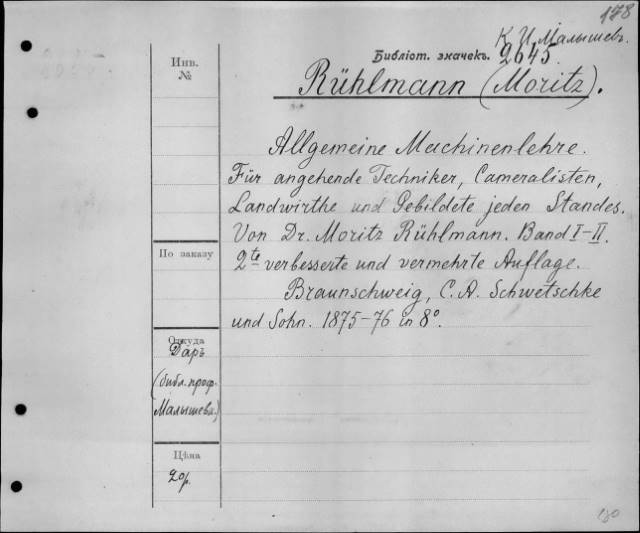 178
К. И. Малышевъ
Библіот. значекъ. 2645.
Rühlmann (Moritz).
Инв.
№
Allgemeine Machinenlehre.
Für angehende Techniker, Cameralisten,
Landwirthe und Gebildete jeden Standes.
Von Dr. Moritz Rühlmann. Band I-II.
2te verbesserte und vermehrte Auflage.
Braunschweig, C. A. Schwetschke
und Sohn. 1875-76 in 8°.
По заказу
Откуда
Даръ
(библ. проф.
Малышева.)
Цѣна
20р.
180